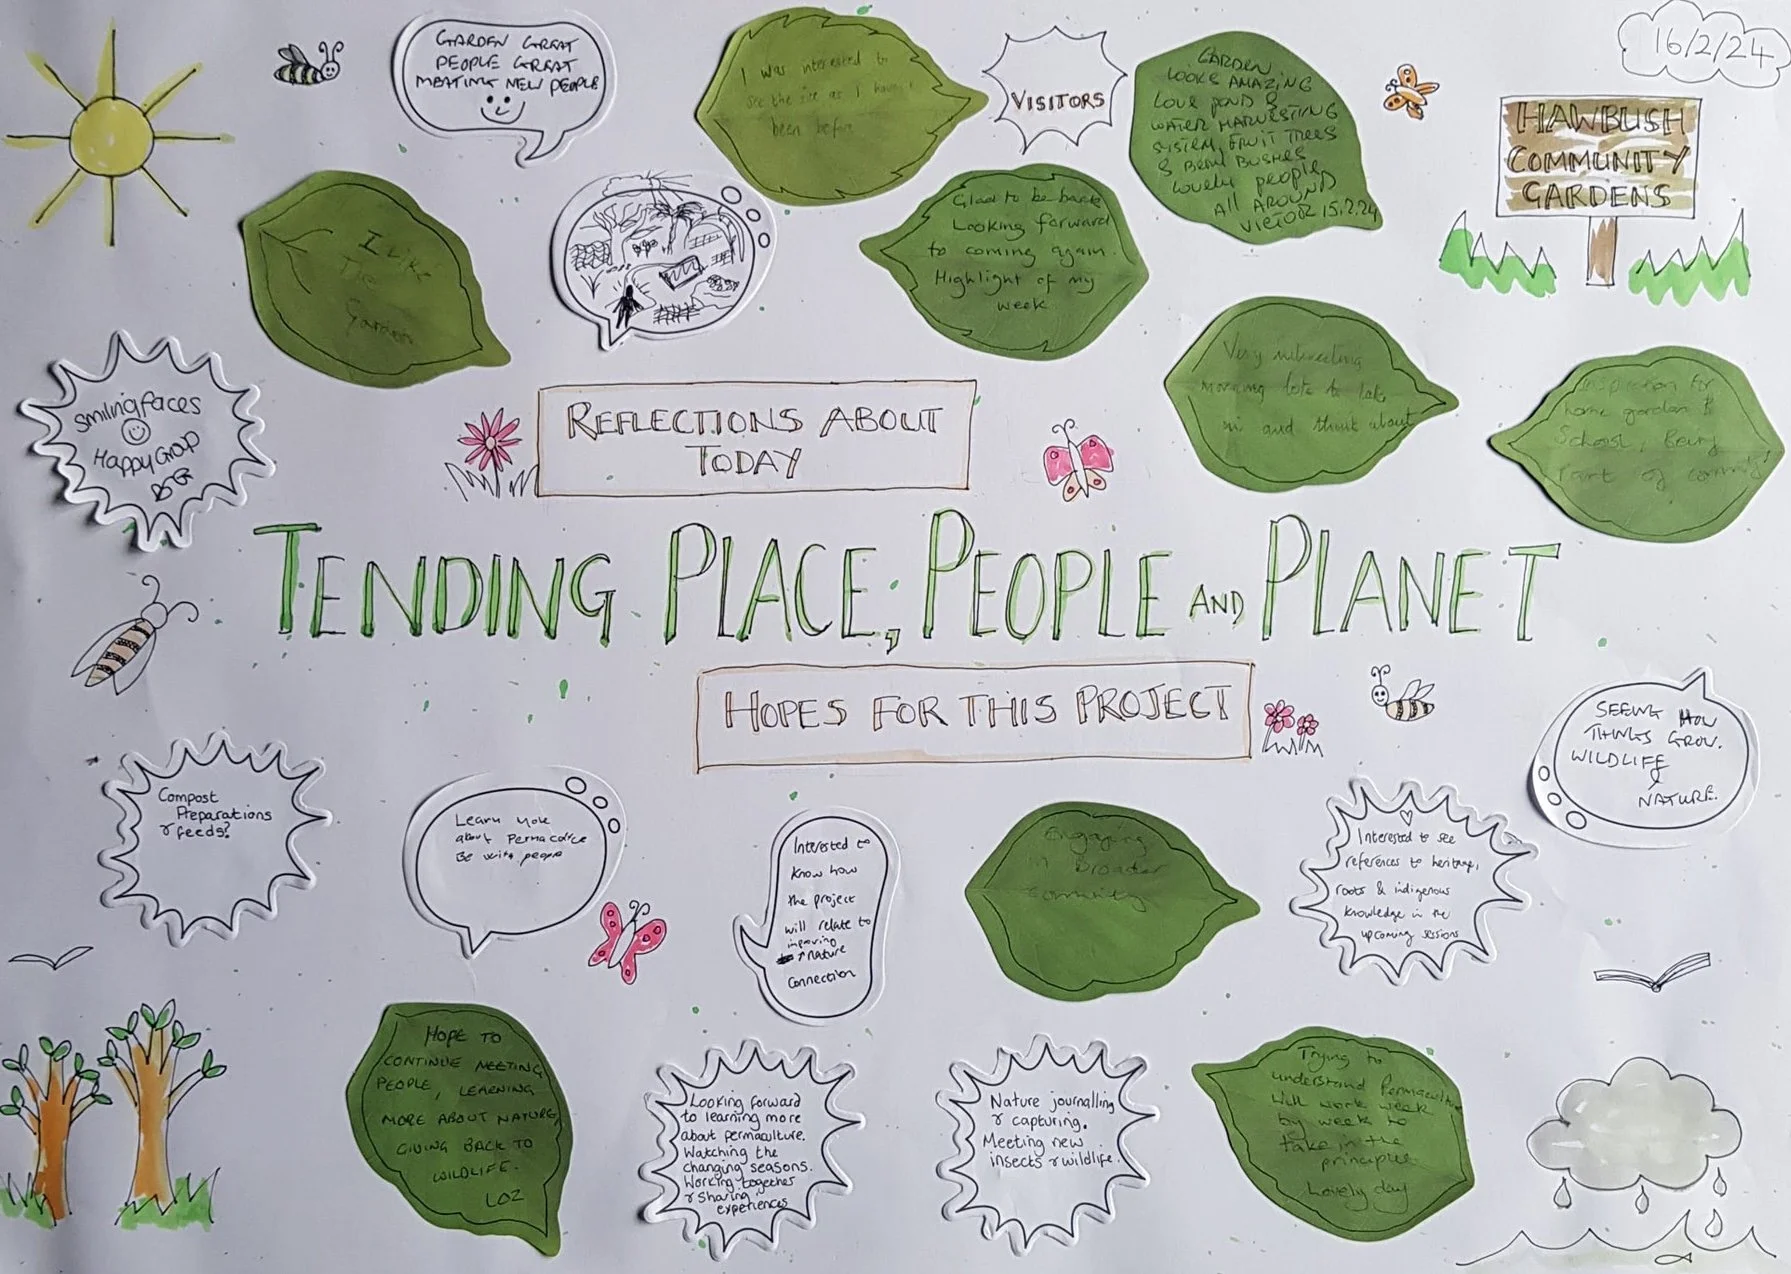 16/2/24
GARDEN GREAT
PEOPLE GREAT
MEETING NEW PEOPLE
I was interested to
see the site as I haven't
been before
VISITORS
GARDEN
LOOKS AMAZING
LOVE POND &
WATER HARVESTING
SYSTEM, FRUIT TREES
& BERRY BUSHES
Lovely people
All AROUND
VICTOR 15.2.24
HAWBUSH
COMMUNITY
GARDENS
I Like
The
Garden
Glad to be back
Looking forward
to coming again.
Highlight of my
week.
Very interesting
morning lots to take
in and think about
Inspiration for
home garden &
School, Being
Part of community!
Smiling faces
Happy Group
REFLECTIONS ABOUT
TODAY
TENDING PLACE, PEOPLE AND PLANET
HOPES FOR THIS PROJECT
SEEING HOW
THINGS GROW.
WILDLIFE
&
NATURE.
Compost
Preparations
& feeds?
Learn more
about Permaculture
Be with people
Interested to
know how
the project
will relate to
improving
nature
connection
Engaging
in Broader
community
Interested to see
references to heritage,
roots & indigenous
knowledge in the
upcoming sessions
HOPE TO
CONTINUE MEETING
PEOPLE, LEARNING
MORE ABOUT NATURE,
GIVING BACK TO
WILDLIFE.
LOZ
Looking forward
to learning more
about permaculture.
Watching the
changing seasons.
Working together
& Sharing
experiences
Nature journalling
& capturing.
Meeting new
insects & wildlife.
Trying to
understand Permaculture
Will work week
by week to
take in the
principles
Lovely day